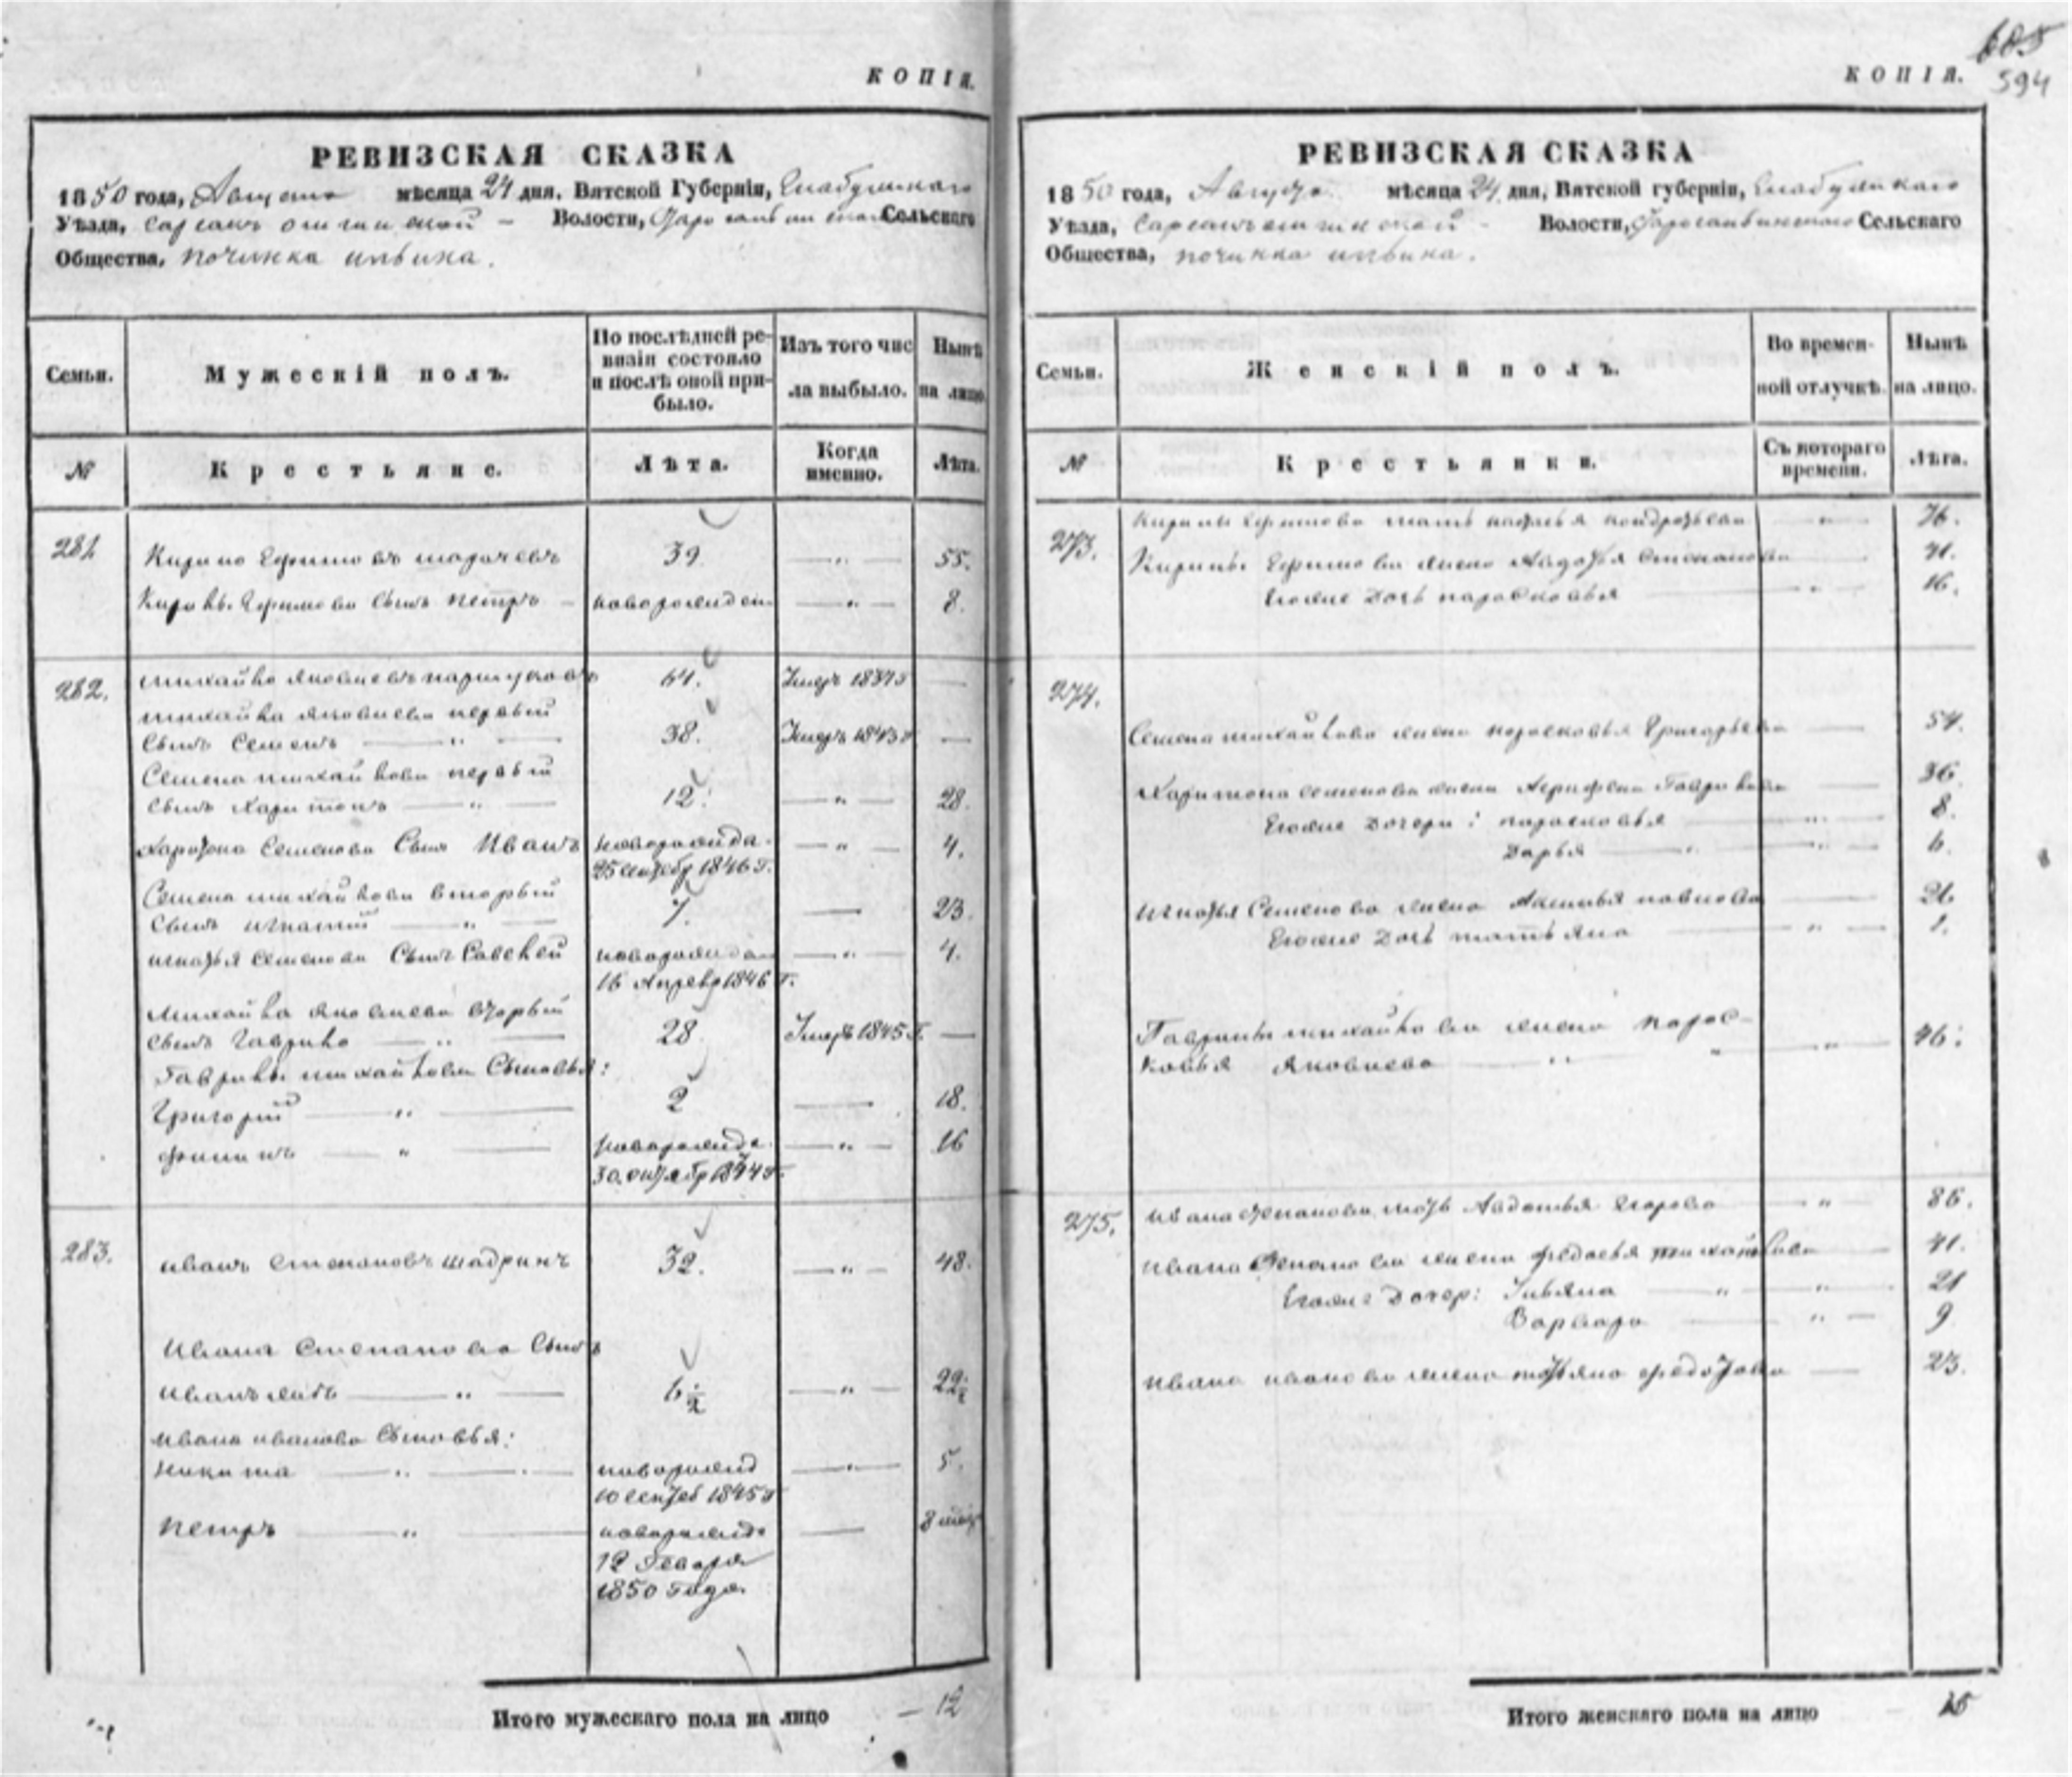 КОПІЯ.
РЕВИЗСКАЯ СКАЗКА
1850 года, Августа мѣсяца 24 дня, Вятской Губерніи, Елабужскаго
Уѣзда, Волости, Сельскаго
Общества, починка
Семьи.
Мужескій полъ.
По послѣдней ре-
визіи состояло
и послѣ оной при-
было.
Изъ того чис
ла выбыло.
Нынѣ
на лицо
№
Крестьяне.
Лѣта.
Когда
именно.
Лѣта.
281 Кирило Ефимовъ 39. — „ — 55.
Кирилы Ефимова сынъ Петръ — новорожден — „ — 8.
282. Михайло Яковлевъ 64. Умеръ —
Михайла Яковлева первый
сынъ Семенъ — „ — 38. Умеръ 1843 г —
Семена Михайлова первый
сынъ Харитонъ — „ — 12. — „ — 28.
Харитона Семенова сынъ Иванъ новорожде. — „ — 4.
25 Сентебр 1846 г.
Семена Михайлова вторый
сынъ Игнатий — „ — 7. — 23.
Игнатья Семенова сынъ Савелей новорожден — „ — 4.
16 Апреля 1846 г.
Михайла Яковлева вторый
сынъ Гаврило — „ — 28. Умеръ 1845 г. —
Гаврилы Михайлова сыновья:
Григорий — „ — 2 — 18.
Филипъ — „ — новорожде. — „ — 16
30. октябр
283. Иванъ Степановъ Шадринъ 32. — „ — 48.
Ивана Степанова сынъ
Иванъ — „ — 6 1/2 — „ — 22 1/2
Ивана Иванова сыновья:
Никита — „ — новорожд — „ — 5.
10 сентеб 1845 г
Петръ — „ — новорожде — 8
12 Генваря
1850 года.
Итого мужескаго пола на лицо — 12
КОПІЯ.
605
594
РЕВИЗСКАЯ СКАЗКА
1850 года, Августа мѣсяца 24 дня, Вятской губерніи, Елабужскаго
Уѣзда, Волости, Сельскаго
Общества, починка
Семьи.
Женскій полъ.
Во времен-
ной отлучкѣ.
Нынѣ
на лицо.
№
Крестьянки.
Съ котораго
времени.
Лѣта.
Кирилы Ефимова мать Кондратьева — „ — 76.
273. Кирилы Ефимова жена Авдотья Степанова — 41.
Егоже дочь Парасковья — „ — 16.
274.
Семена Михайлова жена Парасковья Григорьева — 54.
Харитона Семенова жена Аграфена Гаврилова — 36.
Егоже дочери: Парасковья — „ — 8.
Дарья — „ — „ — 6.
Игнатья Семенова жена Павлова — 21.
Егоже дочь Татьяна — „ — 1.
Гаврилы Михайлова жена Парас-
ковья Яковлева — „ — „ — 46.
275. Ивана Степанова мать Авдотья Егорова — „ — 86.
Ивана Степанова жена Федосья Михайлова — 41.
Егоже дочер: Ульяна — „ — „ — 21
Варвара — „ — 9
Ивана Иванова жена Татьяна Федотова — 23.
Итого женскаго пола на лицо 15